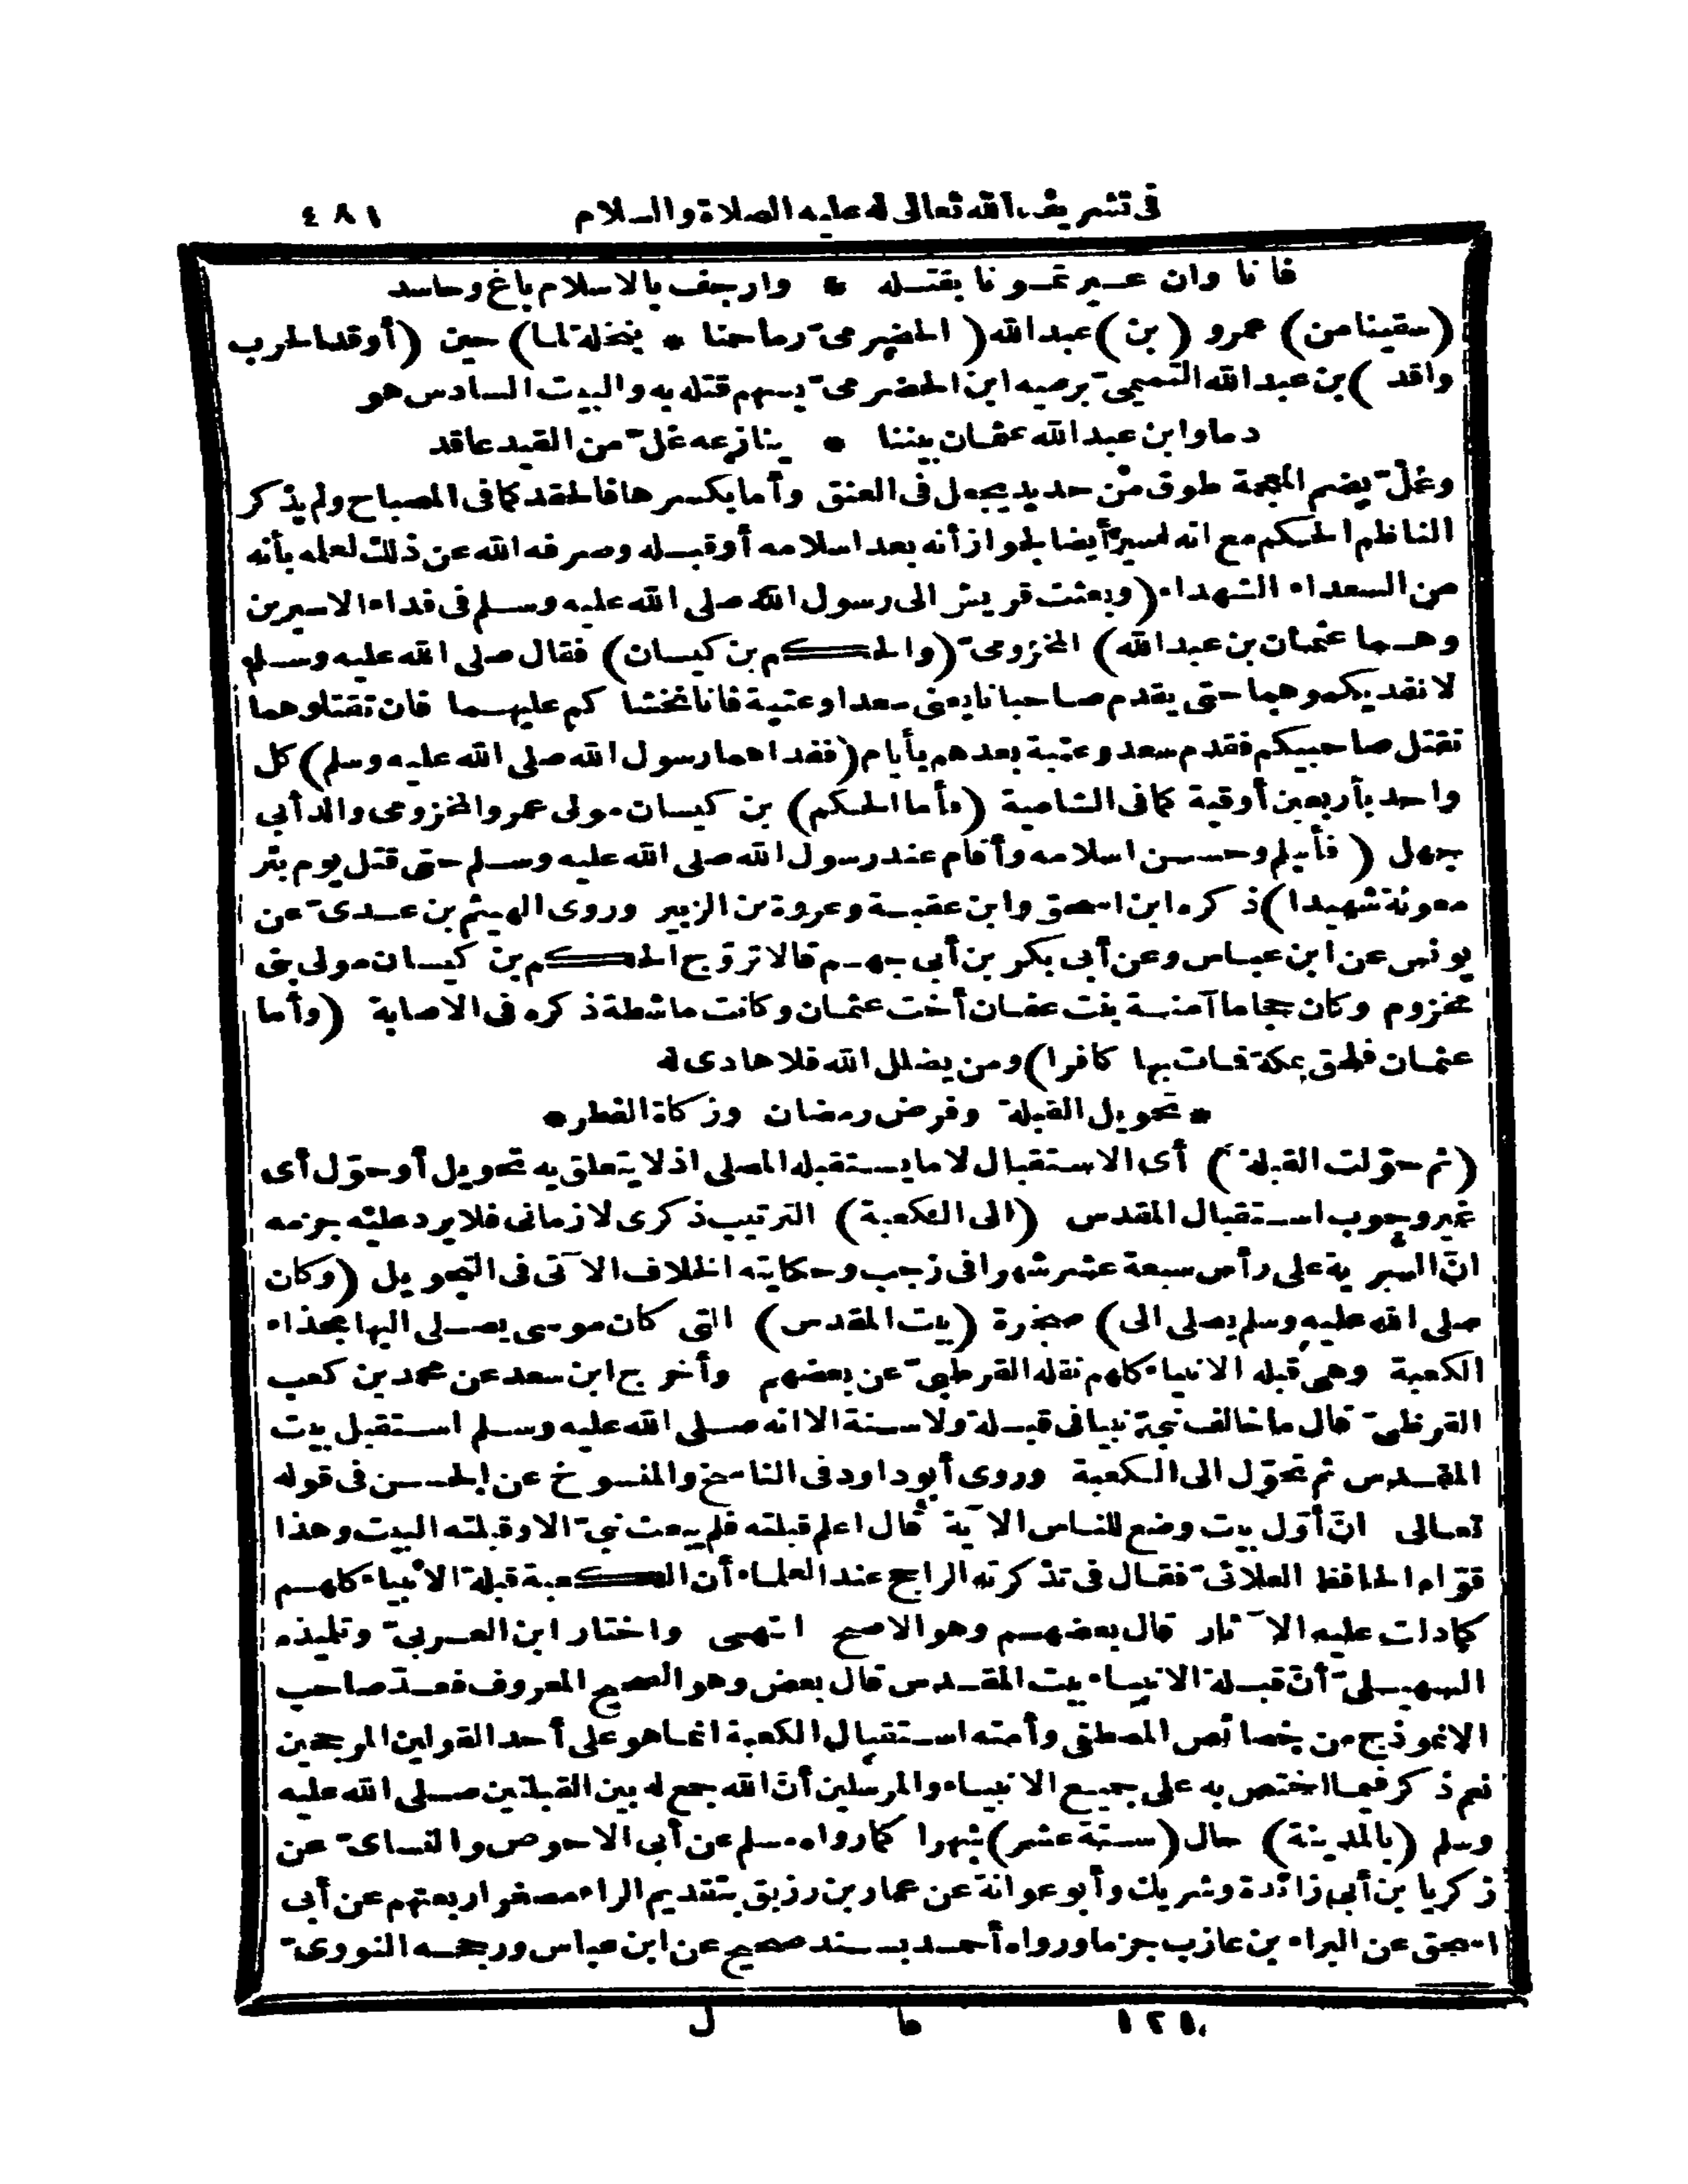 فى تشريف الله تعالى له عليه الصلاة والسلام ٤٨١
فانا وان عـيرتمـونا بقتـله * وارجف بالاسلام باغ وحاسد
(سقينا من) عمرو (بن) عبد الله (الحضرمىّ رماحنا * بنخلة لما) حين (أوقد الحرب
واقد) بن عبد الله التميمىّ برميه ابن الحضرمىّ بسهم قتله به والبيت السادس هو
دما وابن عبد الله عثمان بيننا * ينازعه غلّ من القيد عاقد
وغلّ بضم المعجمة طوق من حديد يجعل فى العنق وأما بكسرها فالحقد كما فى المصباح ولم يذكر
الناظم الحكم مع انه أسير أيضا لجواز أنه بعد اسلامه أو قبـله وصرفه الله عن ذلك لعله بأنه
من السعداء الشهداء (وبعثت قريش الى رسول الله صلى الله عليه وسـلم فى فداء الاسيرين
وهـما عثمان بن عبد الله) المخزومىّ (والحكم بن كيسان) فقال صلى الله عليه وسـلم
لا نفديكموهما حتى يقدم صاحبانا يعنى سعدا وعتبة فانا نخشاكم عليهـما فان تقتلوهما
نقتل صاحبيكم فقدم سعد وعتبة بعدهم بأيام (ففداهما رسول الله صلى الله عليه وسلم) كل
واحد بأربعين أوقية كما فى الشامية (وأما الحكم) بن كيسان مولى عمرو المخزومى والد أبى
جهل (فأسلم وحسـن اسلامه وأقام عند رسول الله صلى الله عليه وسـلم حتى قتل يوم بئر
معونة شهيدا) ذكره ابن اسحق وابن عقبـة وعروة بن الزبير وروى الهيثم بن عـدىّ عن
يونس عن ابن عباس وعن أبى بكر بن أبى جهـم قالا تزوّج الحكم بن كيسان مولى بنى
مخزوم وكان حجاما آمنـة بنت عفان أخت عثمان وكانت ماشطة ذكره فى الاصابة (وأما
عثمان فلحق بمكة فمات بها كافرا) ومن يضلل الله فلا هادى له
* تحويل القبلة وفرض رمضان وزكاة الفطر *
(ثم حوّلت القبلة) أى الاستقبال لا ما يسـتقبله المصلى اذ لا يتعلق به تحويل أو حوّل أى
غير وجوب اسـتقبال المقدس (الى الكعبة) الترتيب ذكرى لا زمانى فلا يرد عليه جزمه
انّ السرية على رأس سبعة عشر شهرا فى رجب وحكايته الخلاف الآتى فى التحويل (وكان
صلى الله عليه وسلم يصلى الى) صخرة (بيت المقدس) التى كان موسى يصـلى اليها بحذاء
الكعبة وهى قبلة الانبياء كلهم نقله القرطبىّ عن بعضهم وأخرج ابن سعد عن محمد بن كعب
القرظىّ قال ما خالف نبىّ نبيا فى قبـلة ولا سـنة الا انه صـلى الله عليه وسـلم اسـتقبل بيت
المقـدس ثم تحوّل الى الكعبة وروى أبو داود فى الناسخ والمنسوخ عن الحسـن فى قوله
تعـالى انّ أوّل بيت وضع للناس الآية قال اعلم قبلته فلم يبعث نبىّ الا وقبلته البيت وهذا
قوّاه الحافظ العلائىّ فقـال فى تذكرته الراجح عند العلماء أن الكعبة قبلة الانبياء كلهـم
كما دات عليه الآثار قال بعضهـم وهو الاصح انتهـى واختار ابن العـربىّ وتلميذه
السهيـلىّ أنّ قبـلة الانبياء بيت المقـدس قال بعض وهو الصحيح المعروف فعـدّ صاحب
الانموذج من خصائص المصطفى وأمته اسـتقبال الكعبة انمـا هو على أحد القولين المرجحين
نعم ذكر فيما اختص به على جميـع الانبيـاء والمرسلين أنّ الله جمع له بين القبلتين صـلى الله عليه
وسلم (بالمدينة) حال (سـتة عشر) شهرا كما رواه مسلم عن أبى الاحوص والنساىّ عن
زكريا بن أبى زائدة وشريك وأبو عوانة عن عمار بن رزيق بتقديم الراء مصغرا ربعتهم عن أبى
اسحق عن البراء بن عازب جزما ورواه أحمـد بسـند صحيح عن ابن عباس ورجحـه النووىّ
١٢١ ما ل